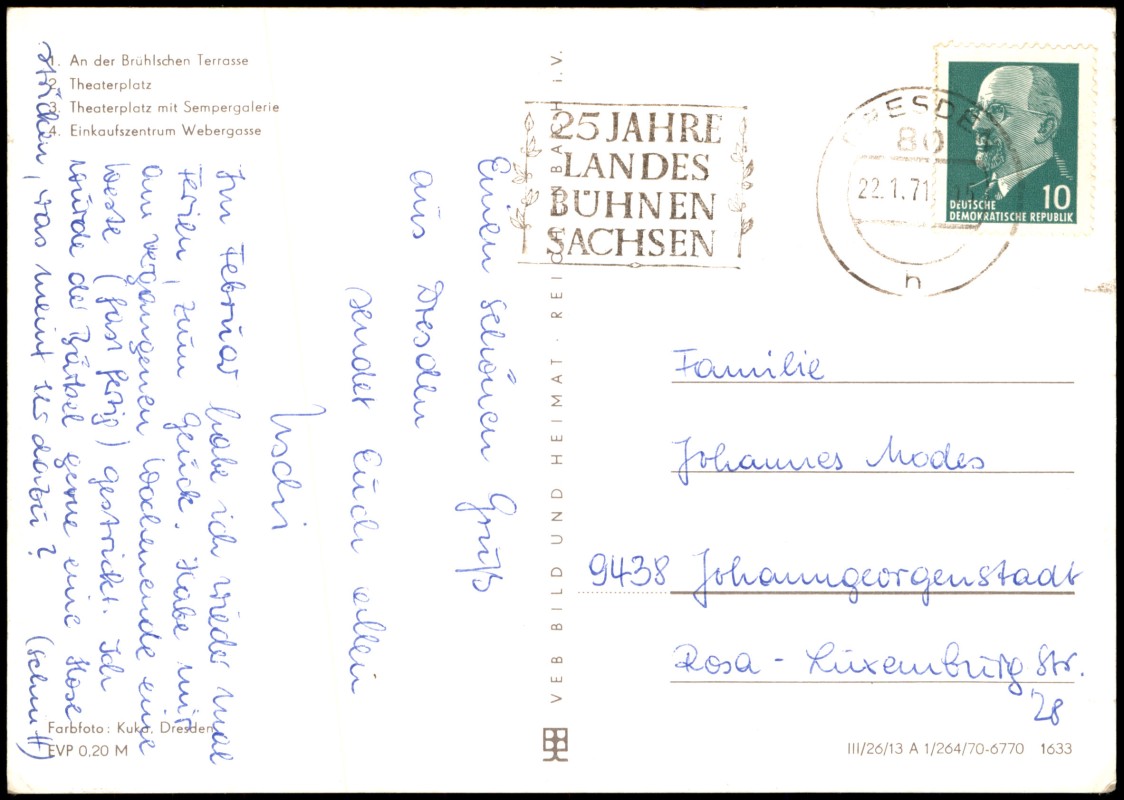 1. An der Brühlschen Terrasse
2. Theaterplatz
3. Theaterplatz mit Sempergalerie
4. Einkaufszentrum Webergasse
Einen schönen Gruß
aus Dresden
sendet Euch allen
Uschi
Im Februar habe ich wieder mal
Ferien, zum Glück. Habe mir
am vergangenen Wochenende eine
Weste (fast fertig) gestrickt. Ich
würde der Bärbel gerne eine Hose
stricken, was meint Ihr dazu? (Schnitt)
Farbfoto: Kuka, Dresden
EVP 0,20 M
VEB BILD UND HEIMAT · REICHENBACH i.V.
25 JAHRE
LANDES
BÜHNEN
SACHSEN
DRESDEN
80
22.1.71
h
10
DEUTSCHE
DEMOKRATISCHE REPUBLIK
Familie
Johannes Modes
9438 Johanngeorgenstadt
Rosa-Luxemburg Str.
28
III/26/13 A 1/264/70-6770 1633